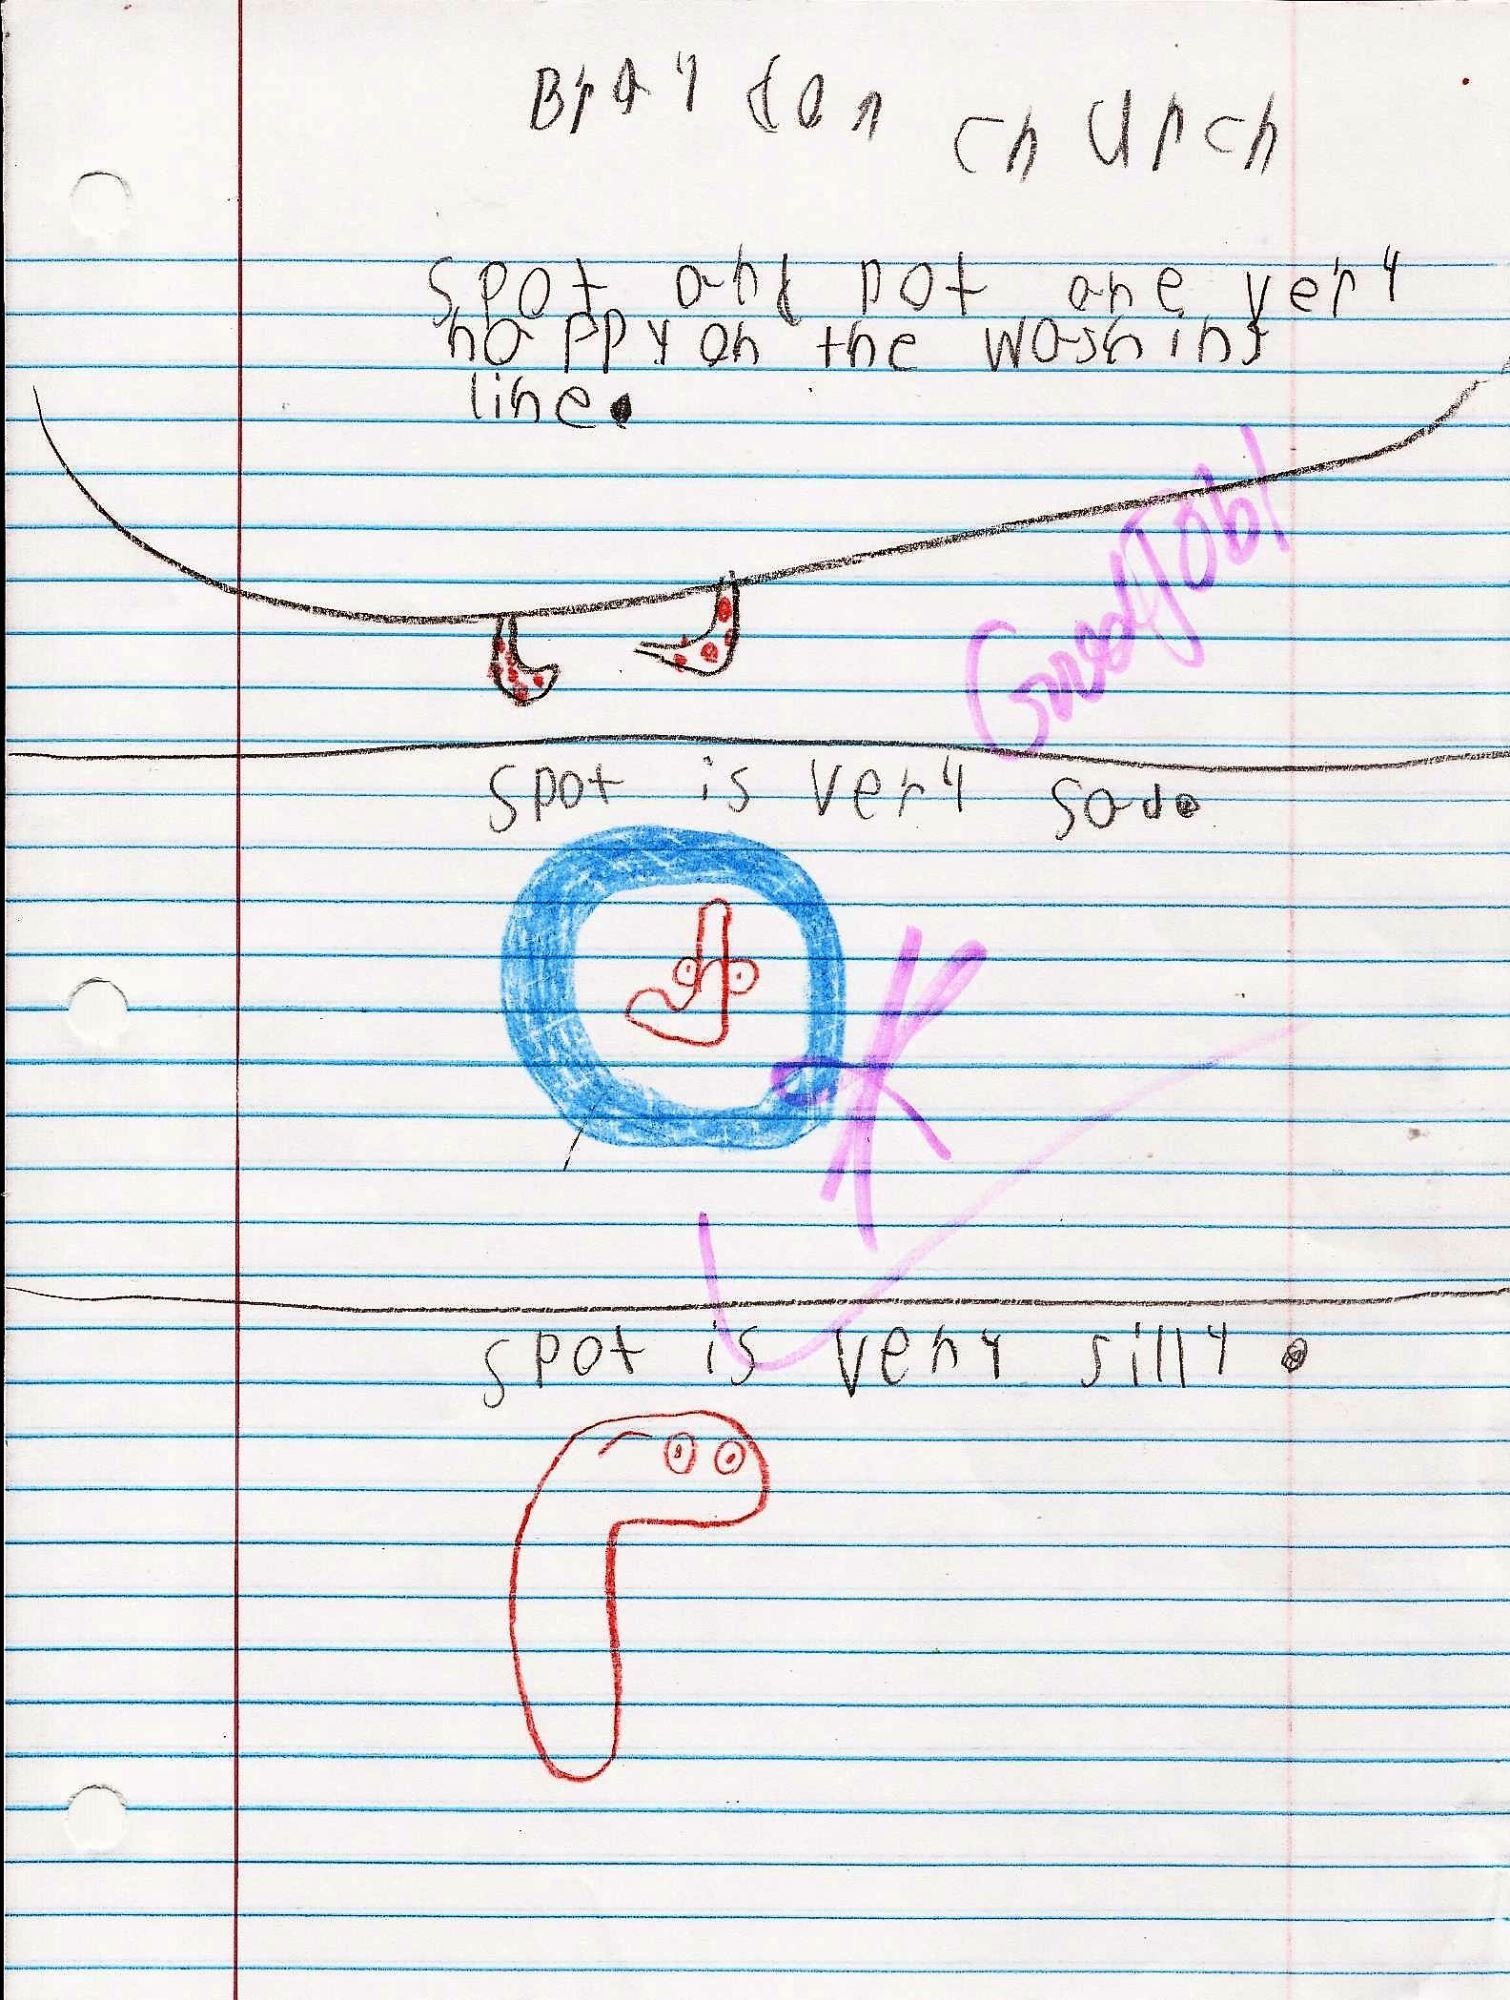 Brayden Church
Spot and Dot are very
happy on the washing
line.
Good Job!
Spot is very sad.
OK
Spot is very silly.